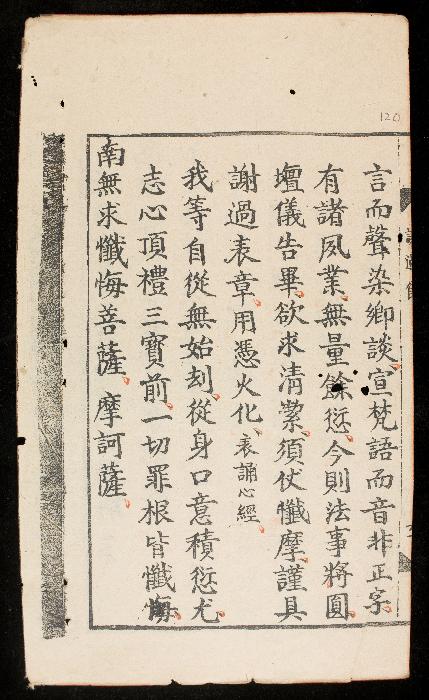 言而聲染鄉談宣梵語而音非正字
有諸夙業無量餘愆今則法事將圓
壇儀告畢欲求清潔須仗懺摩謹具
謝過表章用憑火化表誦心經
我等自從無始刼從身口意積愆尤
志心頂禮三寶前一切罪根皆懺悔
南無求懺悔菩薩摩訶薩
120